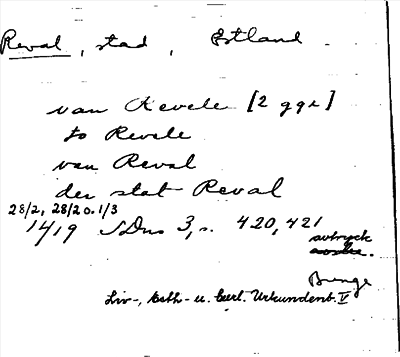 Reval, stad, Estland.
van Revele [2 ggr]
to Revele
van Reval
der stat Reval
28/2, 28/2 o. 1/3
1419 SDns 3, s. 420, 421
avtryck
Bunge
Liv-, Esth- u. Curl. Urkundenb. V